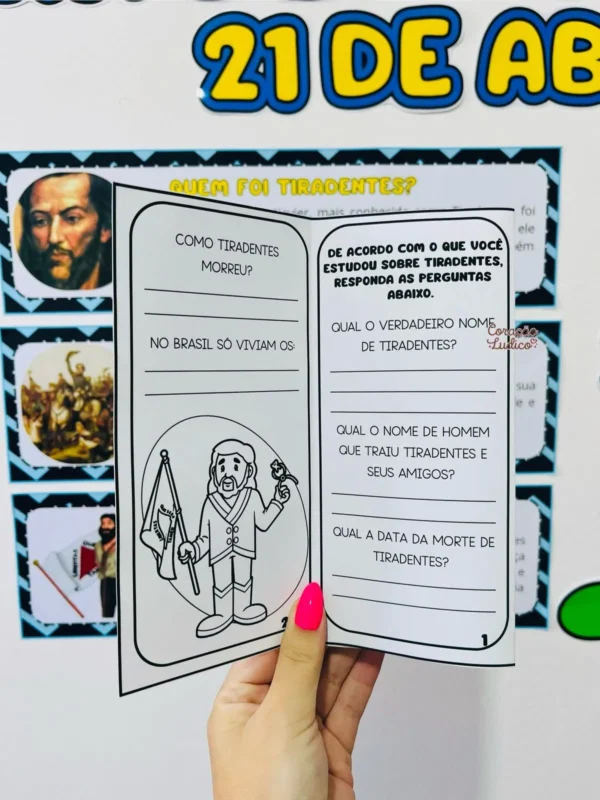 21 DE AB
QUEM FOI TIRADENTES?
mais conhecido
foi
ele
COMO TIRADENTES
MORREU?
NO BRASIL SÓ VIVIAM OS:
2
DE ACORDO COM O QUE VOCÊ
ESTUDOU SOBRE TIRADENTES,
RESPONDA AS PERGUNTAS
ABAIXO.
QUAL O VERDADEIRO NOME
DE TIRADENTES?
QUAL O NOME DE HOMEM
QUE TRAIU TIRADENTES E
SEUS AMIGOS?
QUAL A DATA DA MORTE DE
TIRADENTES?
1
Coração
Lúdico
sua
e e